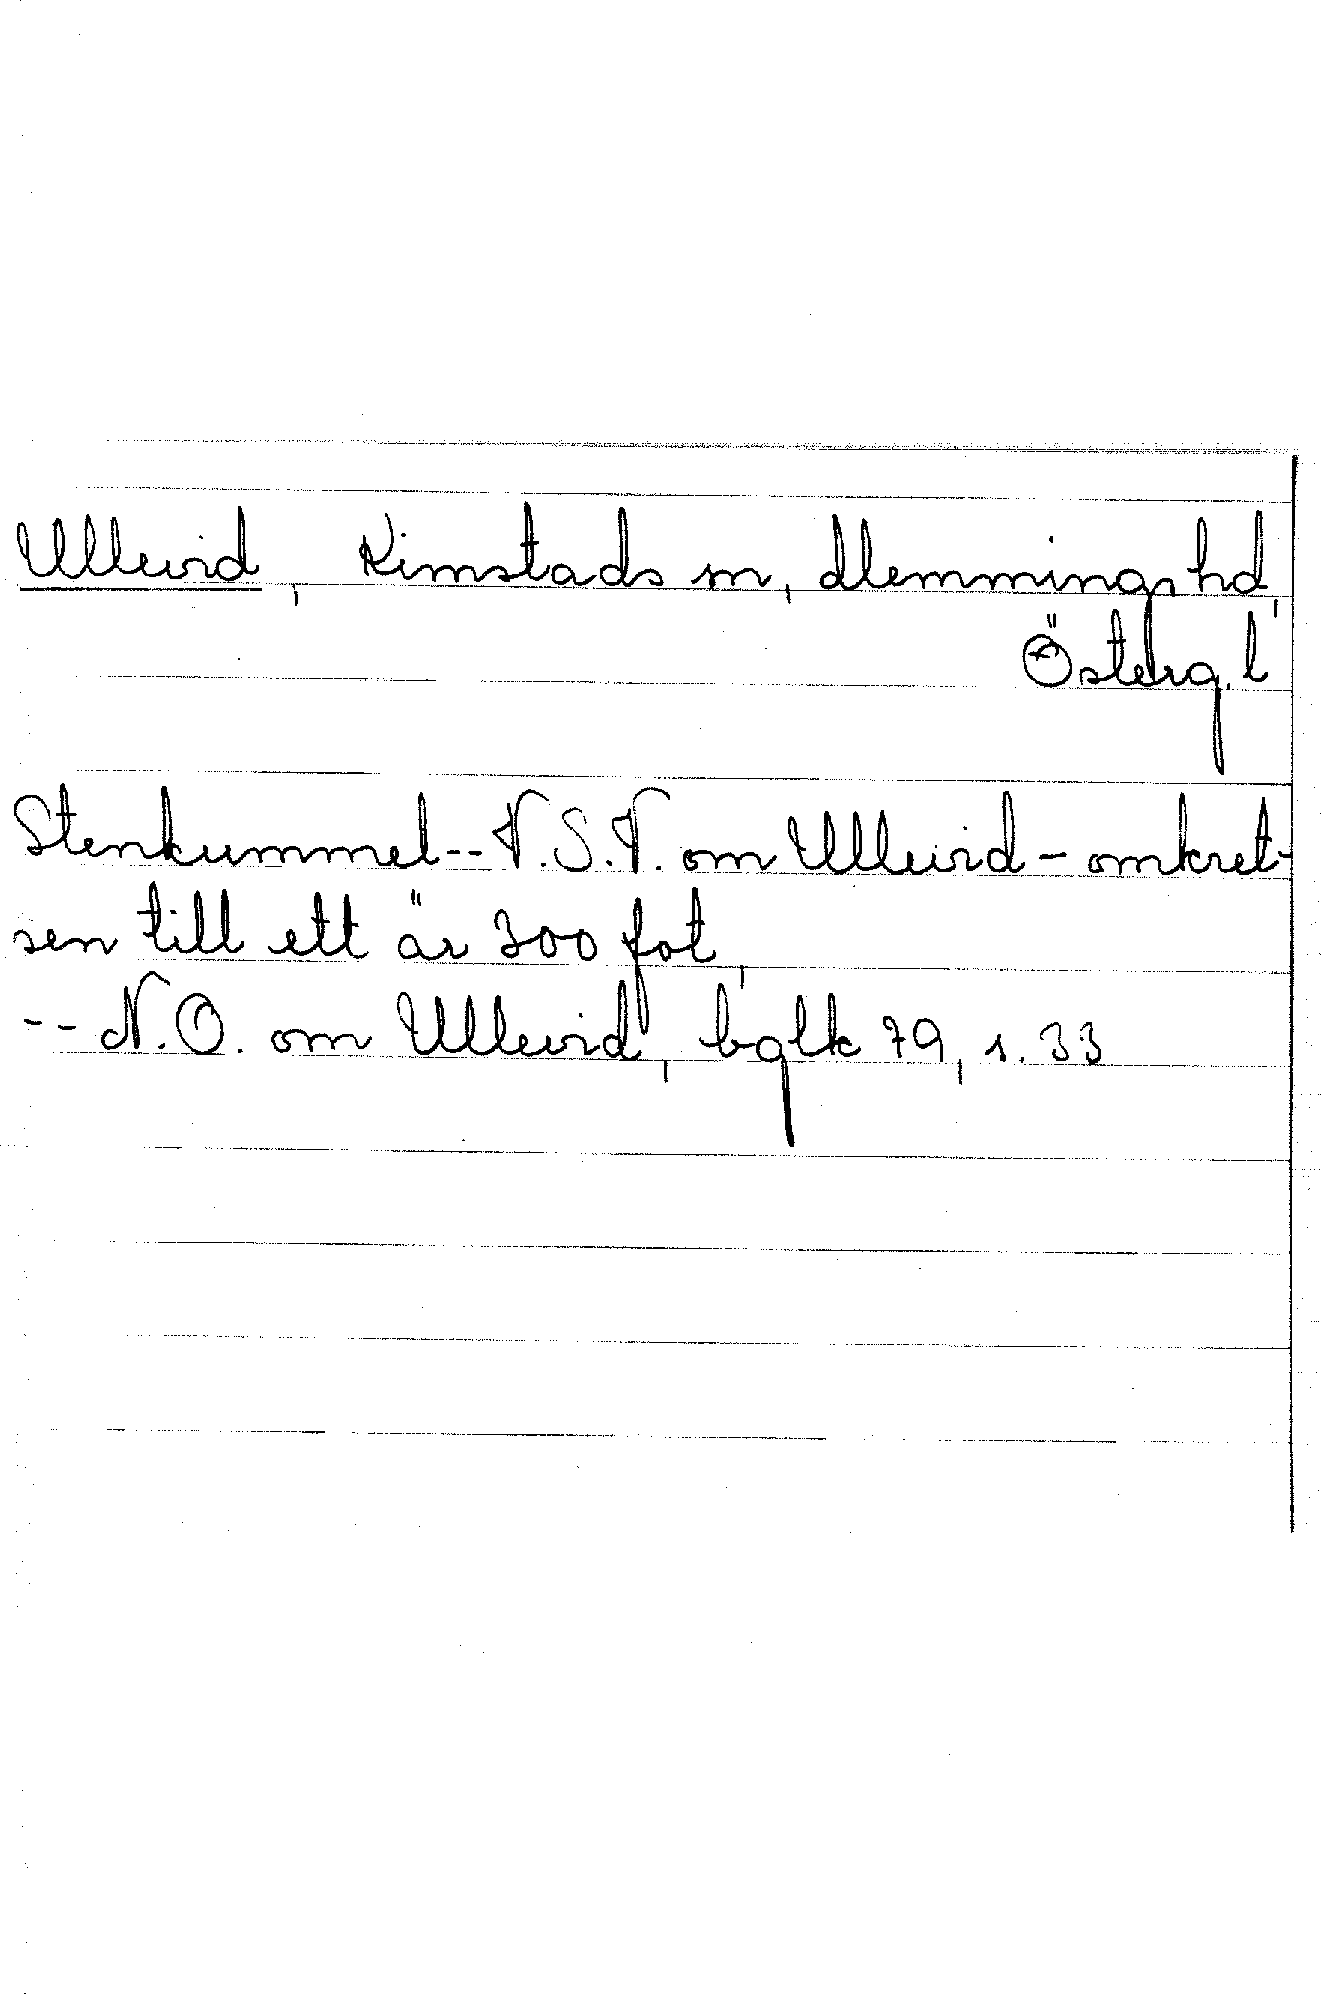 Ullevid, Kimstads sn, Memmings hd,
Österg. l
Stenkummel -- V.S.V. om Ullevid - omkret-
sen till ett är 300 fot,
-- N.O. om Ullevid, bglk 79, s. 33